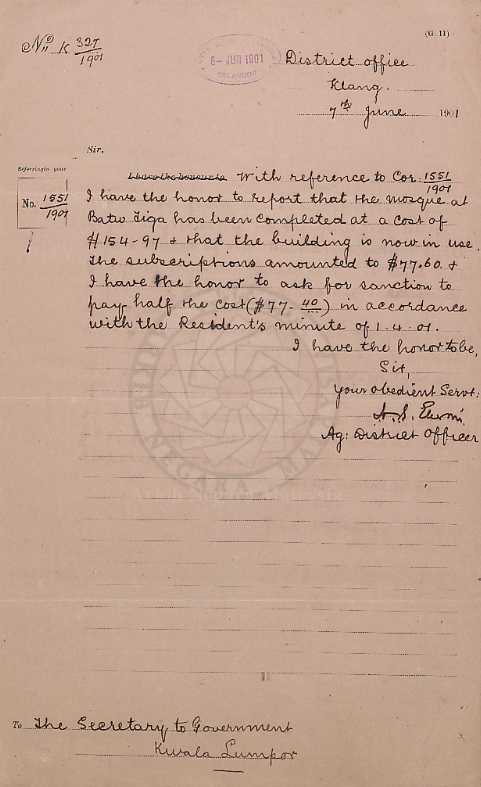 (G. 11)
No K 327/1901
8- JUN 1901
SELANGOR
District office
Klang.
7th June 1901
Sir,
Referring to your
No. 1551/1901
I have the honour to With reference to Cor: 1551/1901
I have the honor to report that the mosque at
Batu Tiga has been completed at a cost of
$154-97 & that the building is now in use.
The subscriptions amounted to $77.60. &
I have the honor to ask for sanction to
pay half the cost ($77.40) in accordance
with the Resident's minute of 1.4.01.
I have the honor to be,
Sir,
Your obedient Servt:
Ag: District Officer
ARKIB NEGARA MALAYSIA
To The Secretary to Government
Kwala Lumpor